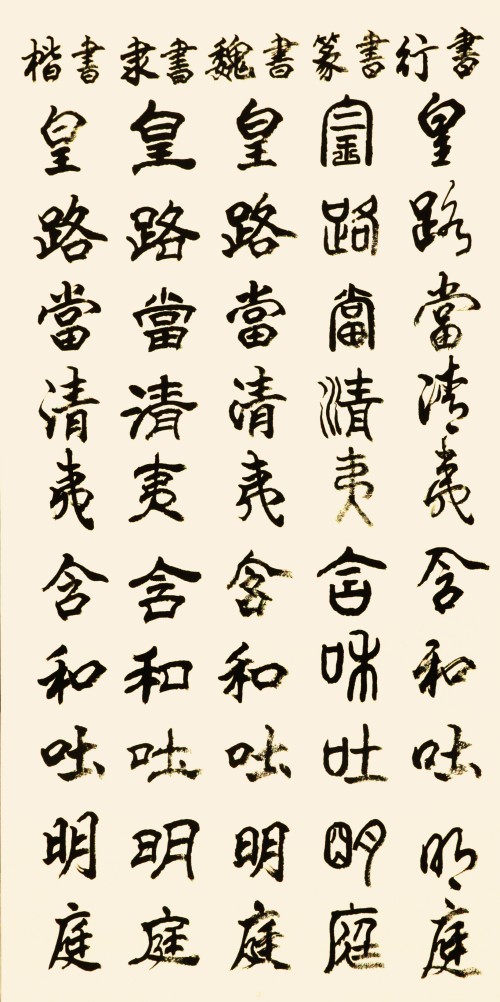 行書
皇路當清夷含和吐明庭
篆書
皇路當清夷含和吐明庭
魏書
皇路當清夷含和吐明庭
隶書
皇路當清夷含和吐明庭
楷書
皇路當清夷含和吐明庭